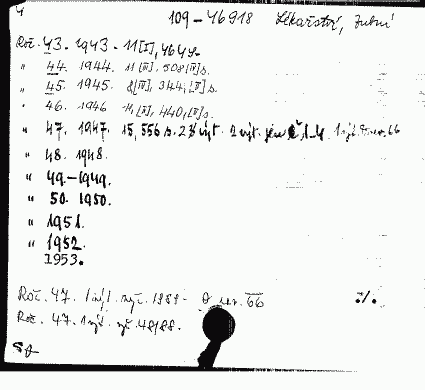 4
109-46918 Lékařství, Zubní
Roč. 43. 1943. 11[I], 464 s.
" 44. 1944. 11[II], 508[II]s.
" 45. 1945. 8[II], 344,[II]s.
" 46. 1946 11,[I], 440,[I]s.
" 47. 1947. 15, 556 s. 2 výt. 1-4 66
" 48. 1948.
" 49.-1949.
" 50. 1950.
" 1951.
" 1952.
1953.
Roč. 47. 1 výt. 1989- 66
./.
Roč. 47. 1 výt. 48/88.